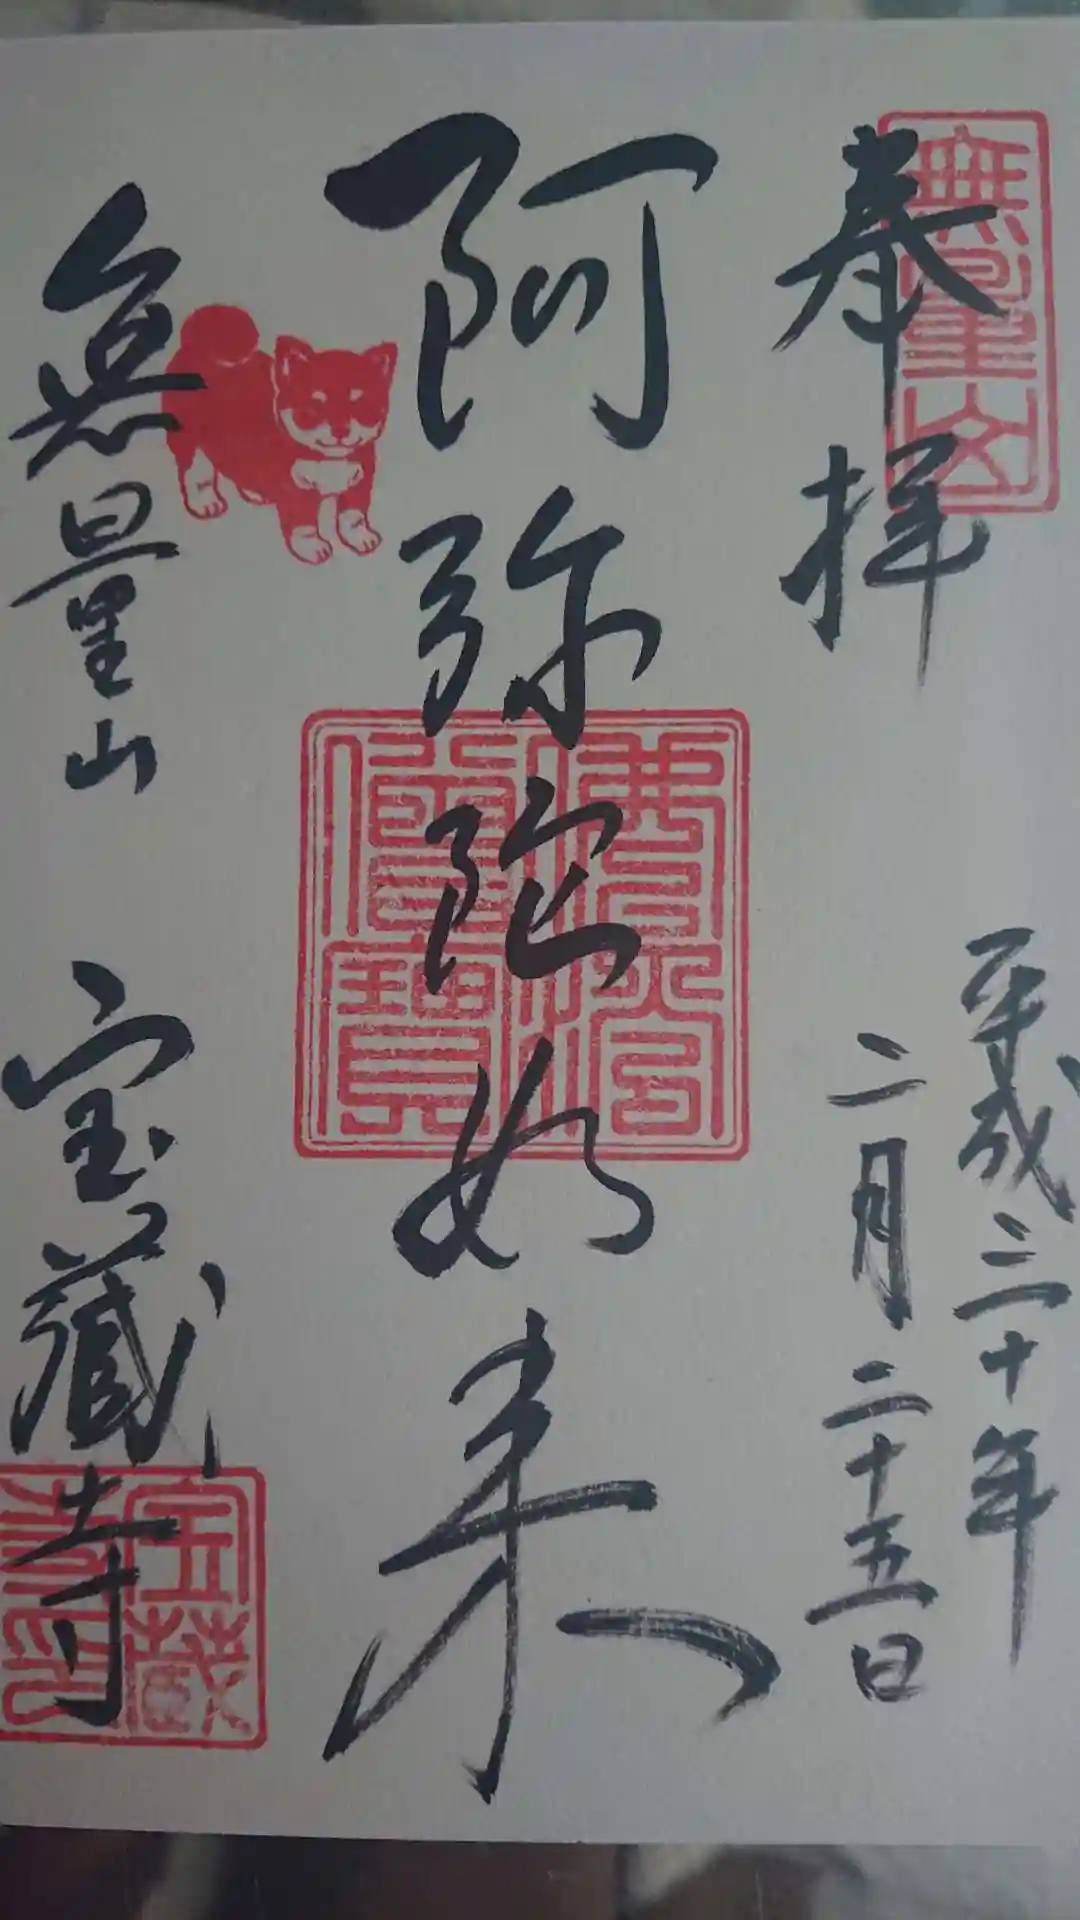 奉拝
平成三十年
二月二十五日
阿弥陀如来
無量山 宝蔵寺
無量山
佛法僧寶
宝蔵寺印